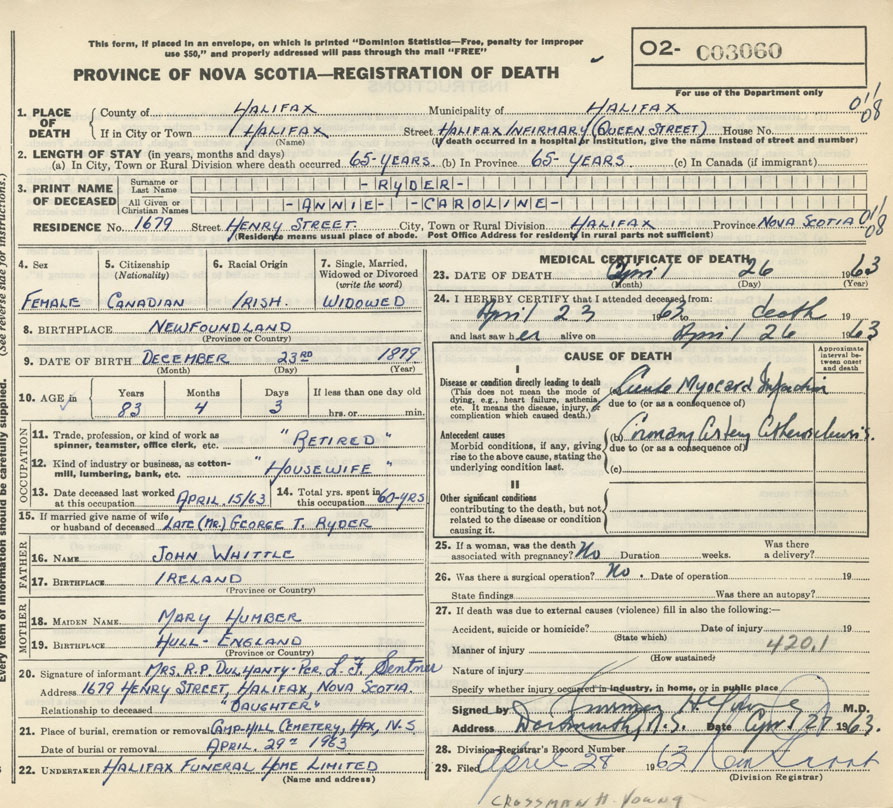 This form, if placed in an envelope, on which is printed "Dominion Statistics—Free, penalty for improper
use $50," and properly addressed will pass through the mail "FREE"
PROVINCE OF NOVA SCOTIA—REGISTRATION OF DEATH
O2- 003060
For use of the Department only
1. PLACE OF DEATH
County of HALIFAX Municipality of HALIFAX 011
08
If in City or Town HALIFAX Street HALIFAX INFIRMARY (QUEEN STREET) House No.
(Name) (If death occurred in a hospital or institution, give the name instead of street and number)
2. LENGTH OF STAY (in years, months and days)
(a) In City, Town or Rural Division where death occurred 65-YEARS. (b) In Province 65-YEARS (c) In Canada (if immigrant)
3. PRINT NAME OF DECEASED
Surname or Last Name -RYDER-
All Given or Christian Names -ANNIE- -CAROLINE-
RESIDENCE No. 1679 Street HENRY STREET. City, Town or Rural Division HALIFAX Province NOVA SCOTIA 011
08
(Residence means usual place of abode. Post Office Address for residents in rural parts not sufficient)
4. Sex
FEMALE
5. Citizenship
(Nationality)
CANADIAN
6. Racial Origin
IRISH.
7. Single, Married,
Widowed or Divorced
(write the word)
WIDOWED
8. BIRTHPLACE NEWFOUNDLAND
(Province or Country)
9. DATE OF BIRTH DECEMBER 23RD 1879
(Month) (Day) (Year)
10. AGE in Years Months Days If less than one day old
83 4 3 hrs. or min.
OCCUPATION
11. Trade, profession, or kind of work as
spinner, teamster, office clerk, etc. "RETIRED"
12. Kind of industry or business, as cotton-
mill, lumbering, bank, etc. "HOUSEWIFE"
13. Date deceased last worked
at this occupation APRIL 15/63
14. Total yrs. spent in
this occupation 60-YRS
15. If married give name of wife
or husband of deceased LATE (MR.) GEORGE T. RYDER
FATHER
16. NAME JOHN WHITTLE
17. BIRTHPLACE IRELAND
(Province or Country)
MOTHER
18. MAIDEN NAME MARY HUMBER
19. BIRTHPLACE HULL-ENGLAND
(Province or Country)
20. Signature of informant MRS. R.P. DULHANTY-PER. L. F. Sentner
Address 1679 HENRY STREET, HALIFAX, NOVA SCOTIA.
Relationship to deceased "DAUGHTER"
21. Place of burial, cremation or removal CAMP-HILL CEMETERY, HFX, N.S.
Date of burial or removal APRIL. 29TH 1963
22. UNDERTAKER HALIFAX FUNERAL HOME LIMITED
(Name and address)
MEDICAL CERTIFICATE OF DEATH
23. DATE OF DEATH April 26 1963
(Month) (Day) (Year)
24. I HEREBY CERTIFY that I attended deceased from:
April 23 1963 to death 19
and last saw her alive on April 26 1963
CAUSE OF DEATH
Approximate
interval be-
tween onset
and death
I
Disease or condition directly leading to death
(This does not mean the mode of
dying, e.g., heart failure, asthenia
etc. It means the disease, injury, or
complication which caused death.)
Acute Myocard Infarction
due to (or as a consequence of)
Antecedent causes
Morbid conditions, if any, giving
rise to the above cause, stating the
underlying condition last.
(b) Coronary Artery Atherosclerosis.
due to (or as a consequence of)
(c)
II
Other significant conditions
contributing to the death, but not
related to the disease or condition
causing it.
25. If a woman, was the death
associated with pregnancy? No Duration weeks. Was there
a delivery?
26. Was there a surgical operation? No. Date of operation 19
State findings Was there an autopsy?
27. If death was due to external causes (violence) fill in also the following:—
Accident, suicide or homicide? Date of injury 19
(State which)
Manner of injury 420.1
(How sustained)
Nature of injury
Specify whether injury occurred in industry, in home, or in public place
Signed by M.D.
Address Dartmouth, N.S. Date April 27 1963.
28. Division Registrar's Record Number
29. Filed April 28 1963
(Division Registrar)
CROSSMAN H. YOUNG
(See reverse side for instructions.)
Every item of information should be carefully supplied.